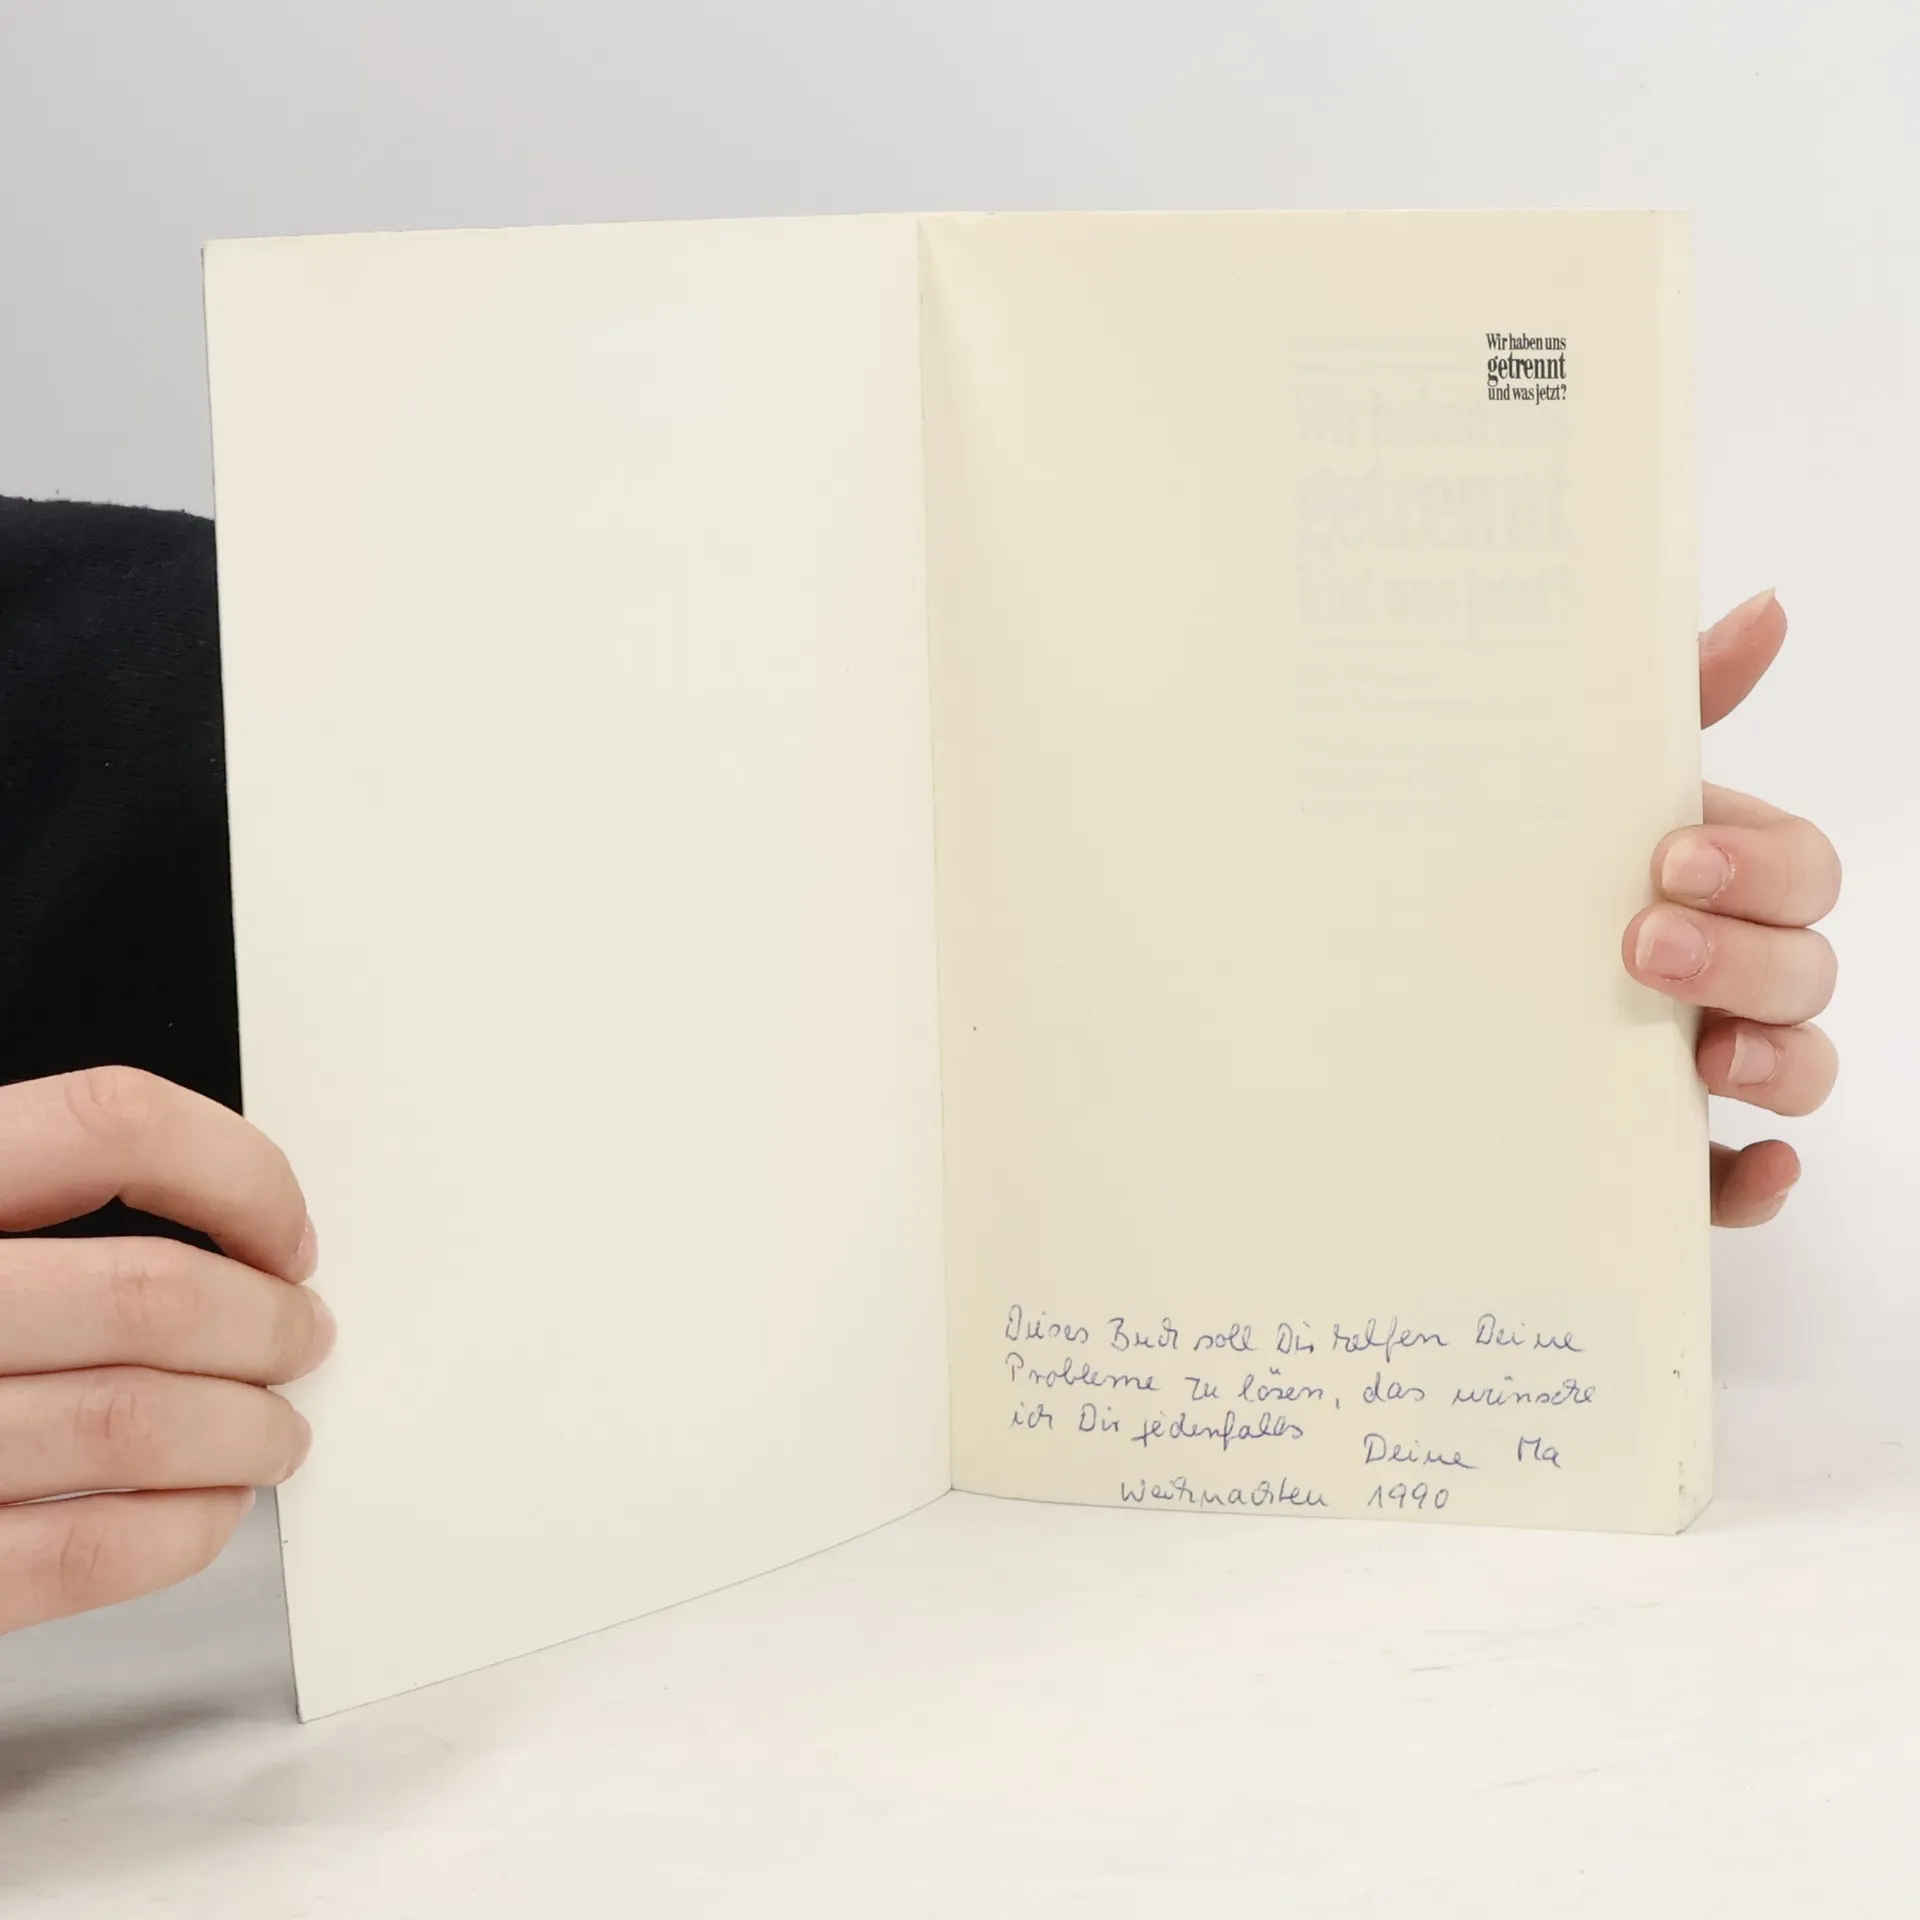 Wir haben uns
getrennt
und was jetzt?
Wir haben uns
getrennt
und was jetzt?
Dieses Buch soll Dir helfen Deine
Probleme zu lösen, das wünsche
ich Dir jedenfalls
Deine Ma
Weihnachten 1990